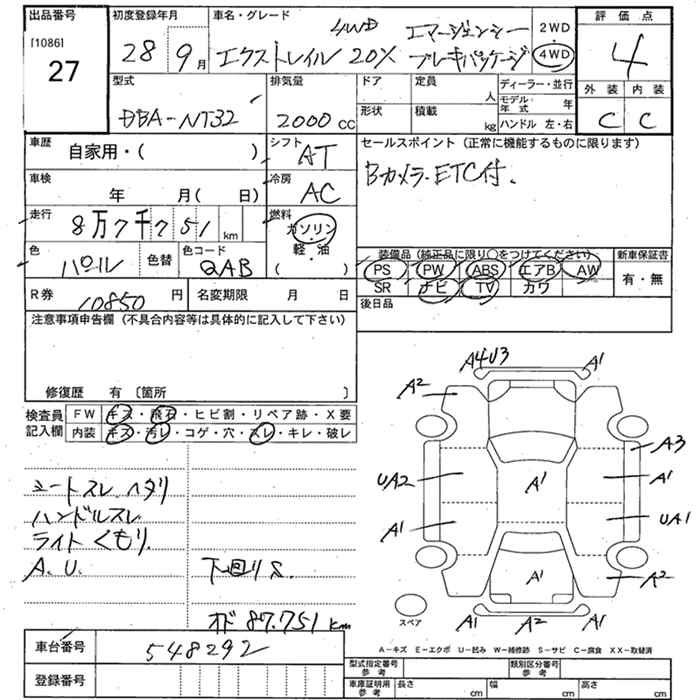 出品番号
[1086]
27
初度登録年月
28 9月
車名・グレード
エクストレイル 20X 4WD エマージェンシーブレーキパッケージ
2WD
4WD
評価点
4
外装 内装
C C
型式
DBA-NT32
排気量
2000 cc
ドア
定員
人
形状
積載
kg
ディーラー・並行
モデル年式 年
ハンドル 左・右
車歴
自家用・( )
シフト
AT
車検
年 月( 日)
冷房
AC
走行
8万7千751 km
燃料
ガソリン
軽・油
( )
色
パール
色替
色コード
QAB
R券
10850 円
名変期限 月 日
セールスポイント (正常に機能するものに限ります)
Bカメラ.ETC付.
装備品 (純正品に限り○をつけてください)
PS PW ABS エアB AW
SR ナビ TV カワ
新車保証書
有・無
後日品
注意事項申告欄 (不具合内容等は具体的に記入して下さい)
修復歴 有 〔箇所 〕
検査員記入欄
FW キズ・飛石・ヒビ割・リペア跡・X要
内装 キズ・汚レ・コゲ・穴・スレ・キレ・破レ
シートスレ.ヘタリ
ハンドルスレ
ライトくもり.
A.U.
下回りS.
オド 87.751km
A4U3 A1
A2
A3
UA2 A1 A1
A1 UA1
A1 A2
A1 A2 A1
スペア
A-キズ E-エクボ U-凹み W-補修跡 S-サビ C-腐食 XX-取替済
車台番号
548292
登録番号
型式指定番号
参考
類別区分番号
参考
車庫証明用
参考
長さ cm 幅 cm 高さ cm